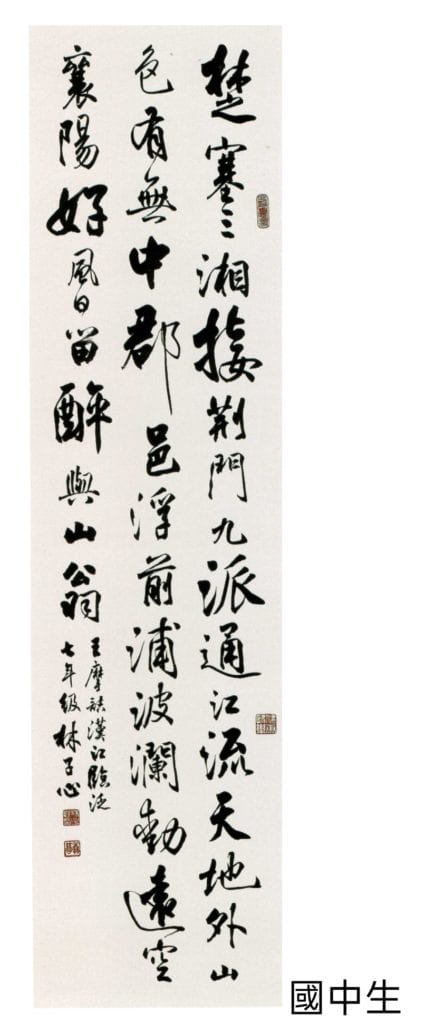 楚塞三湘接荆門九派通江流天地外山
色有無中郡邑浮前浦波瀾動遠空
襄陽好風日留醉與山翁
王摩詰漢江臨泛
七年級林子心
國中生